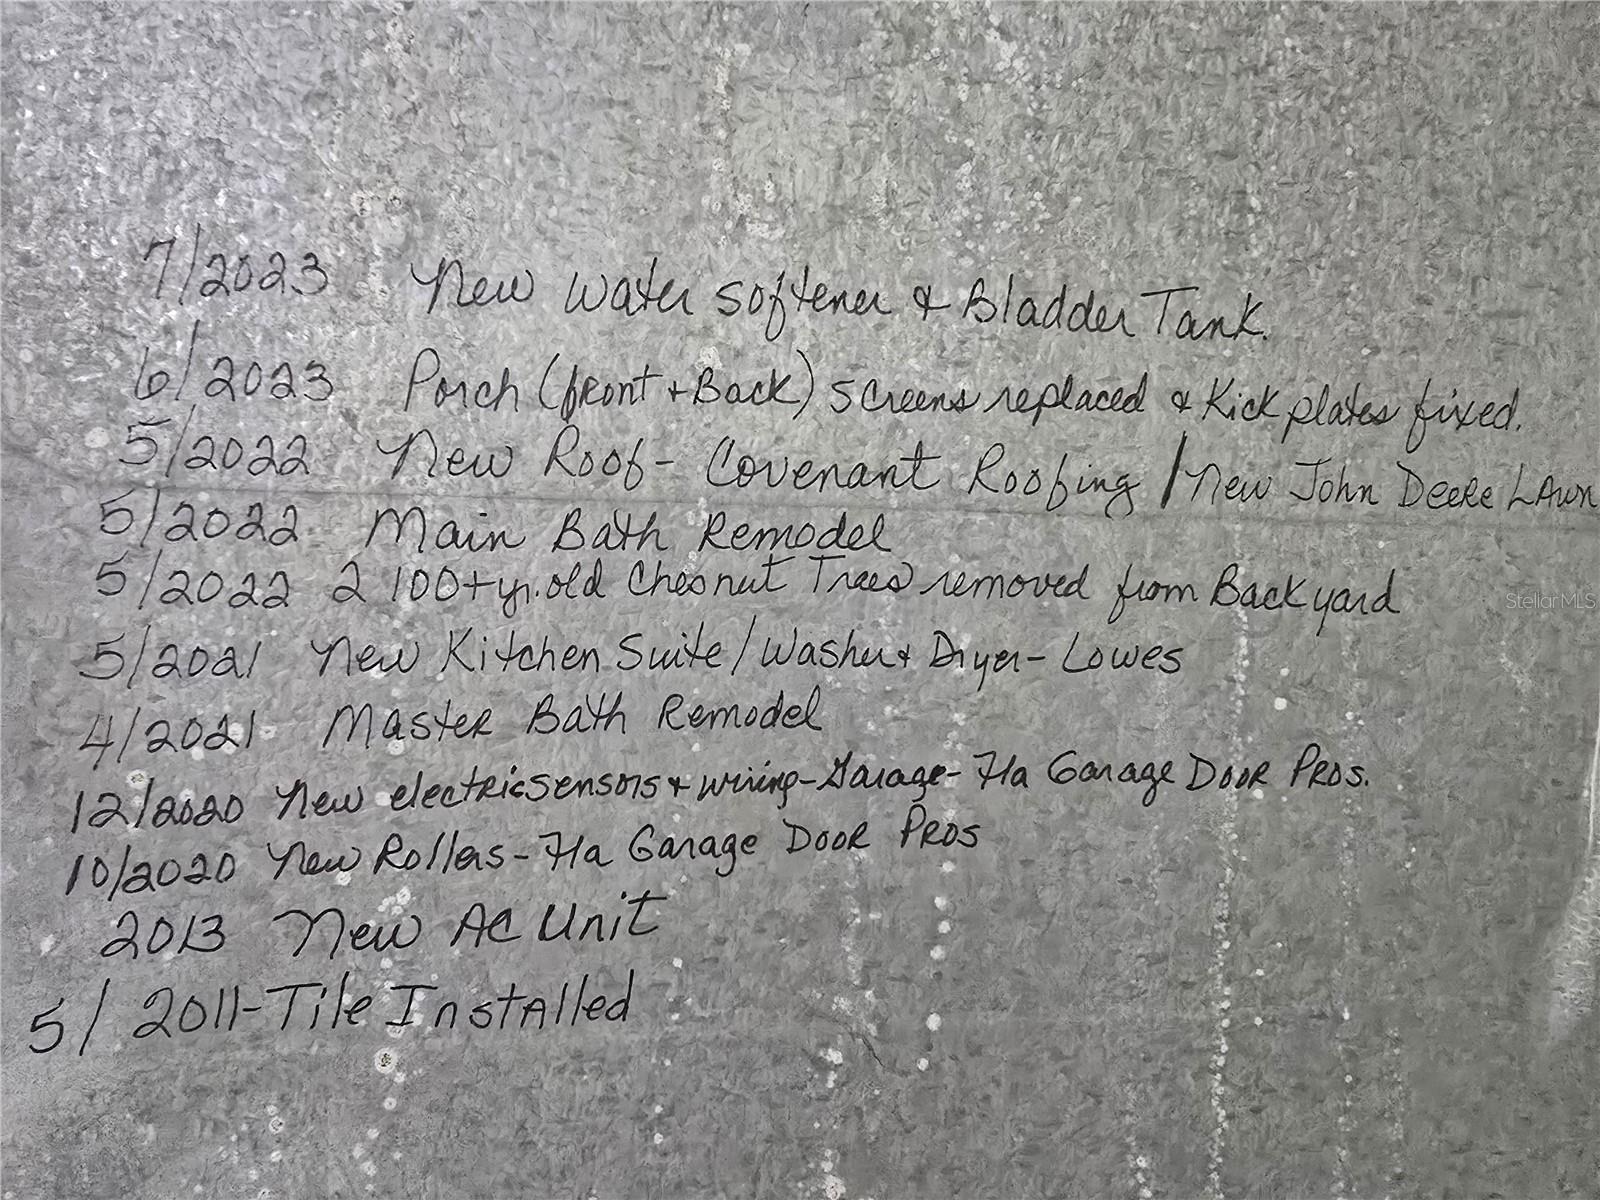 7/2023 New Water Softener & Bladder Tank.
6/2023 Porch (front + Back) screens replaced & Kick plates fixed.
5/2022 New Roof - Covenant Roofing / New John Deere Lawn
5/2022 Main Bath Remodel
5/2022 2 100+ yr. old Chesnut Trees removed from Back yard
StellarMLS
5/2021 New Kitchen Suite / Washer + Dryer - Lowes
4/2021 Master Bath Remodel
12/2020 New electric sensors + wiring - Garage - Fla Garage Door Pros.
10/2020 New Rollers - Fla Garage Door Pros
2013 New AC Unit
5/ 2011 - Tile Installed